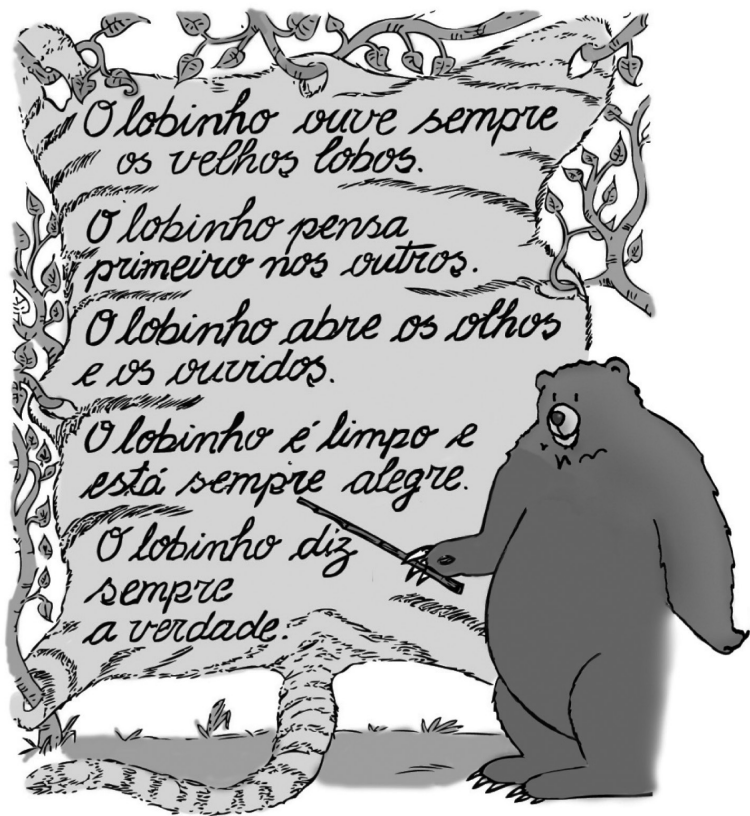 O lobinho ouve sempre
os velhos lobos.
O lobinho pensa
primeiro nos outros.
O lobinho abre os olhos
e os ouvidos.
O lobinho é limpo e
está sempre alegre.
O lobinho diz
sempre
a verdade.